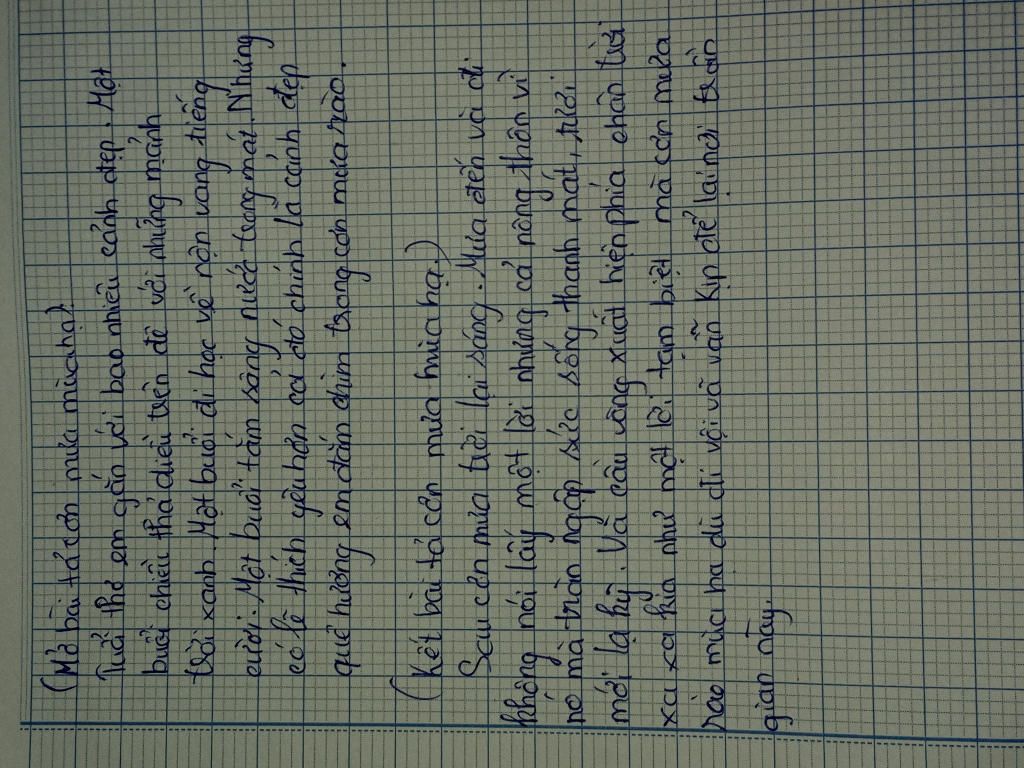 (Mở bài tả cơn mưa mùa hạ)
Tuổi thơ em gắn với bao nhiêu cảnh đẹp. Một
buổi chiều thả diều trên đê với những mảnh
trời xanh. Một buổi đi học về rộn vang tiếng
cười. Một buổi tắm sông nước trong mát. Nhưng
có lẽ thích yêu hơn cả đó chính là cảnh đẹp
quê hương em đắm chìm trong cơn mưa rào.
(Kết bài tả cơn mưa mùa hạ.)
Sau cơn mưa trời lại sáng. Mưa đến và đi
không nói lấy một lời nhưng cả nông thôn vì
nó mà tràn ngập sức sống thanh mát, tươi
mới lạ kỳ. Và cầu vồng xuất hiện phía chân trời
xa xa kia như một lời tạm biệt mà cơn mưa
rào mùa hạ dù đi vội vã vẫn kịp để lại nơi trần
gian này.